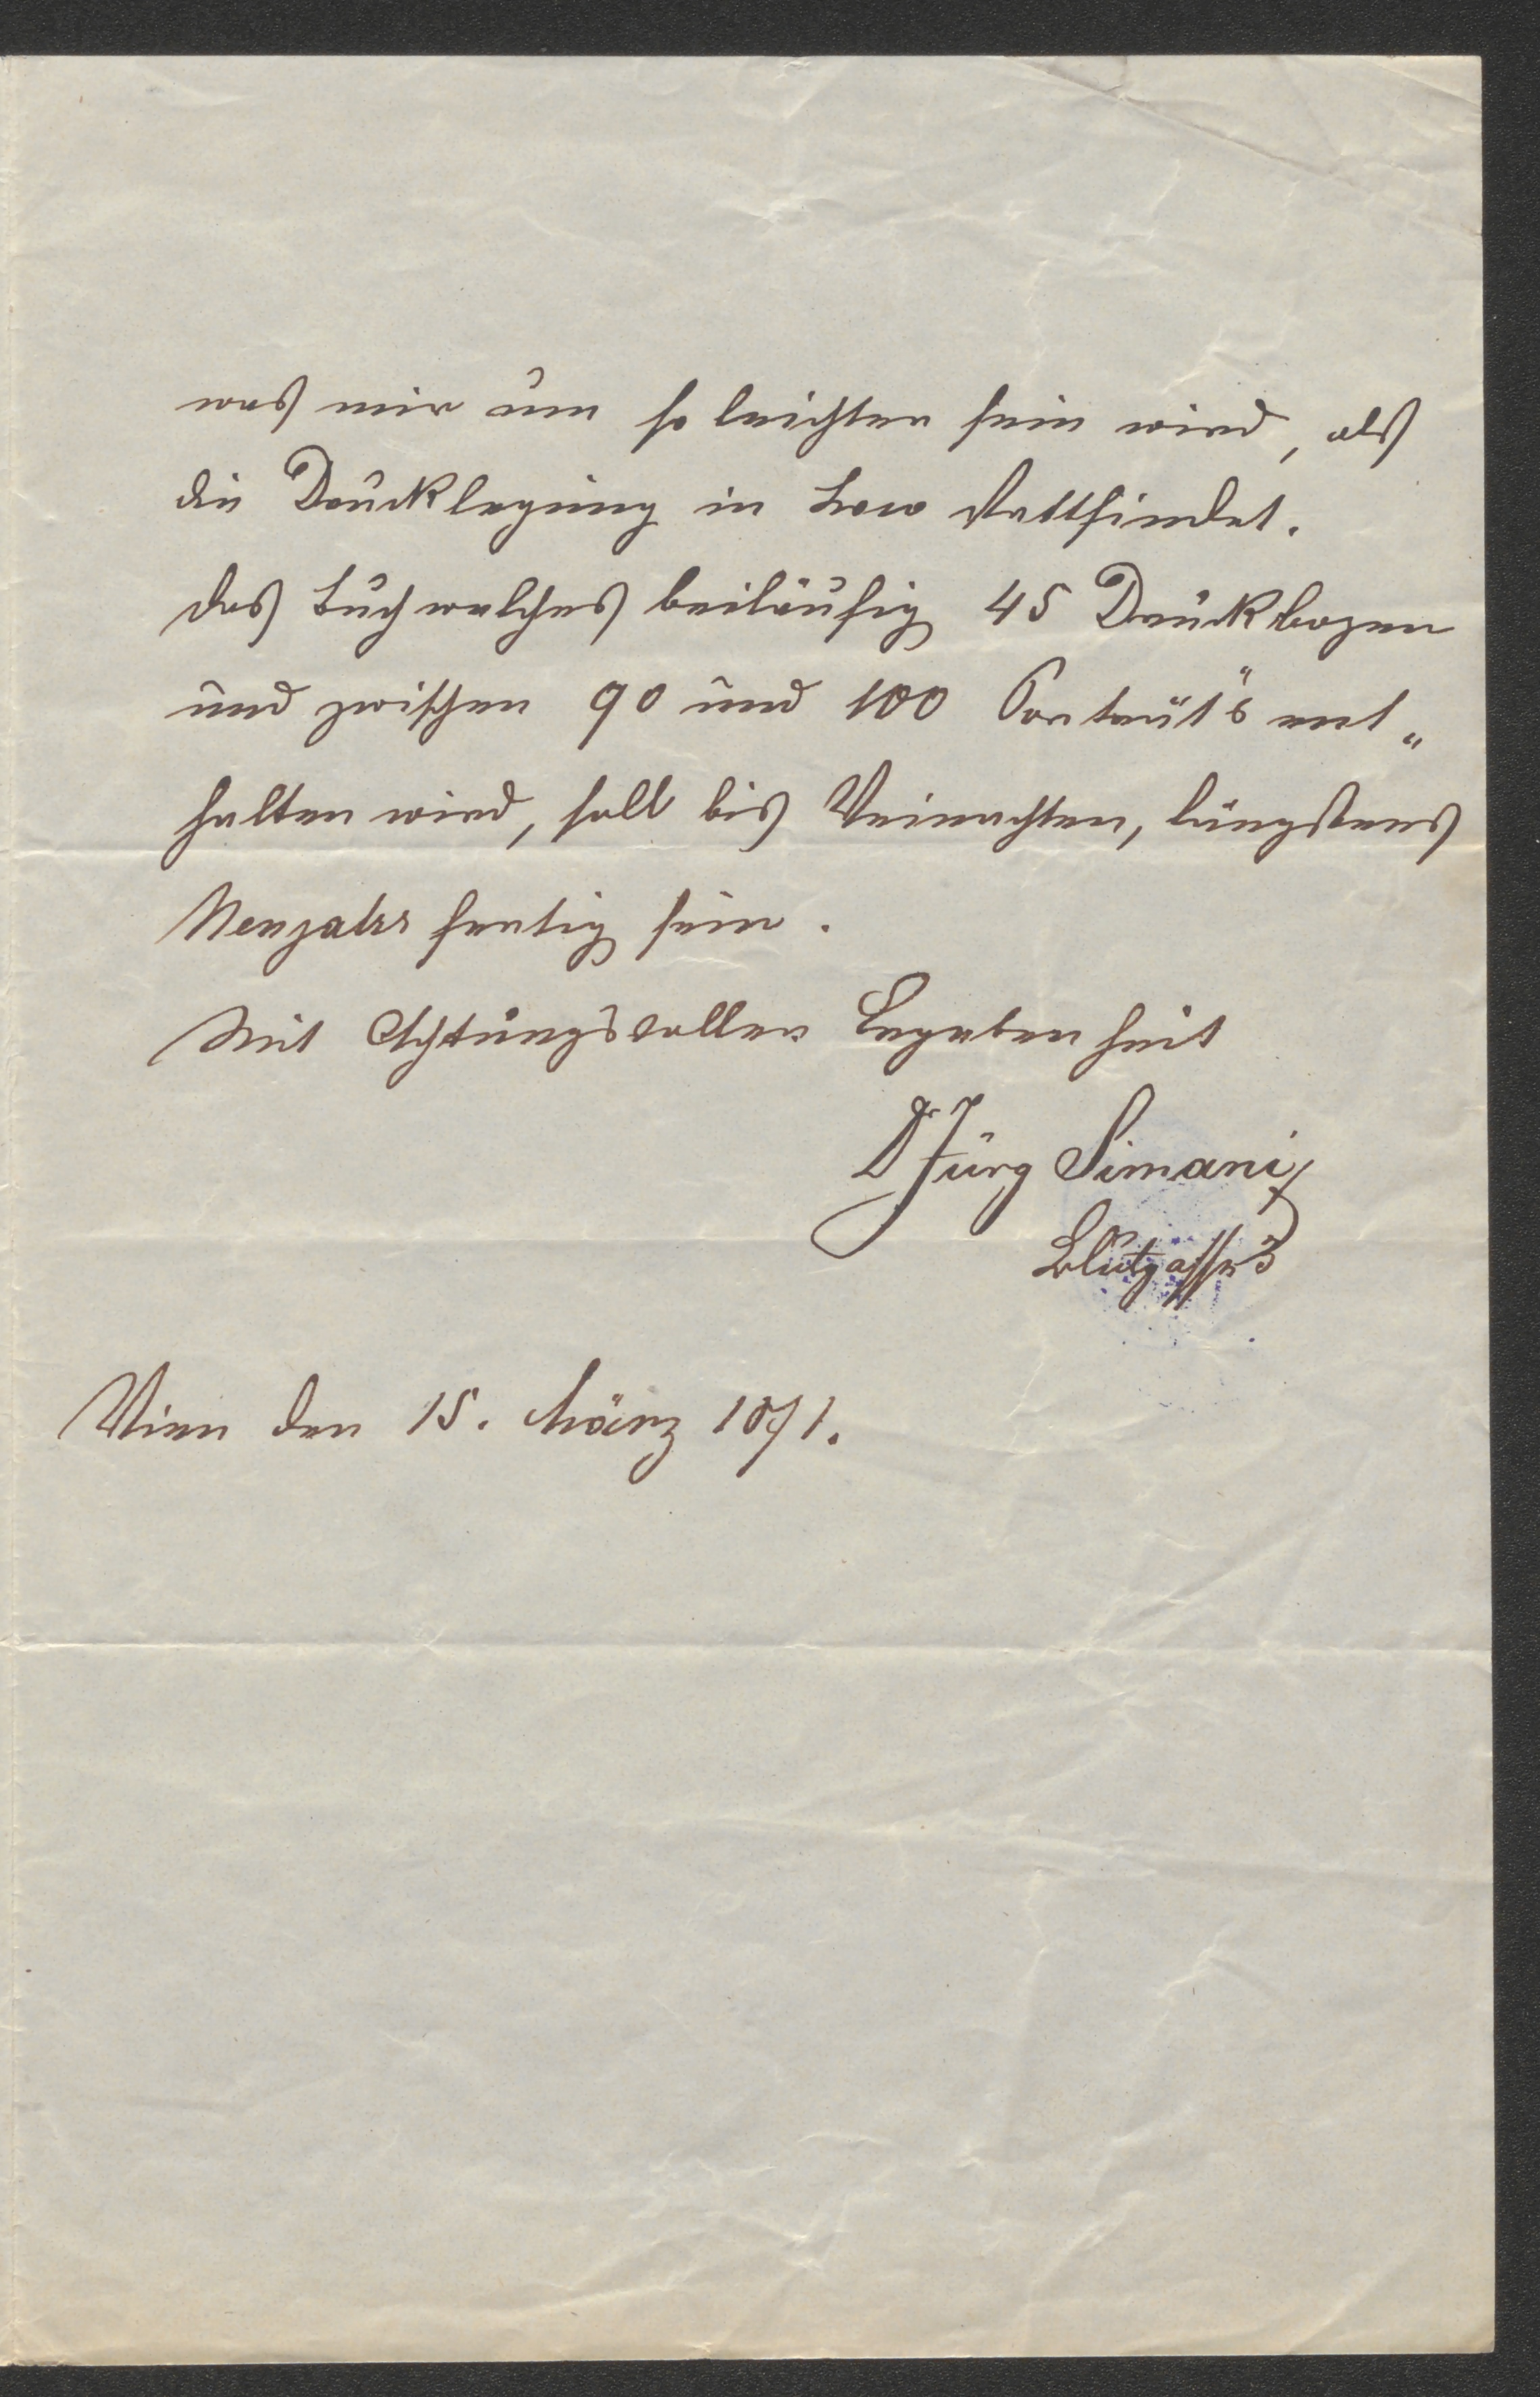 was mir um so leichter sein wird, als
die Drucklegung in Loco stattfindet.
das Buch welches beiläufig 45 Druckbogen
und zwischen 90 und 100 Porträt's ent„
halten wird, soll bis Weinachten, längstens
Neujahr fertig sein.
Mit Achtungsvoller Ergebenheit
Dr Jürg Simani
Blutgasse 3
Wien den 15. März 1871.